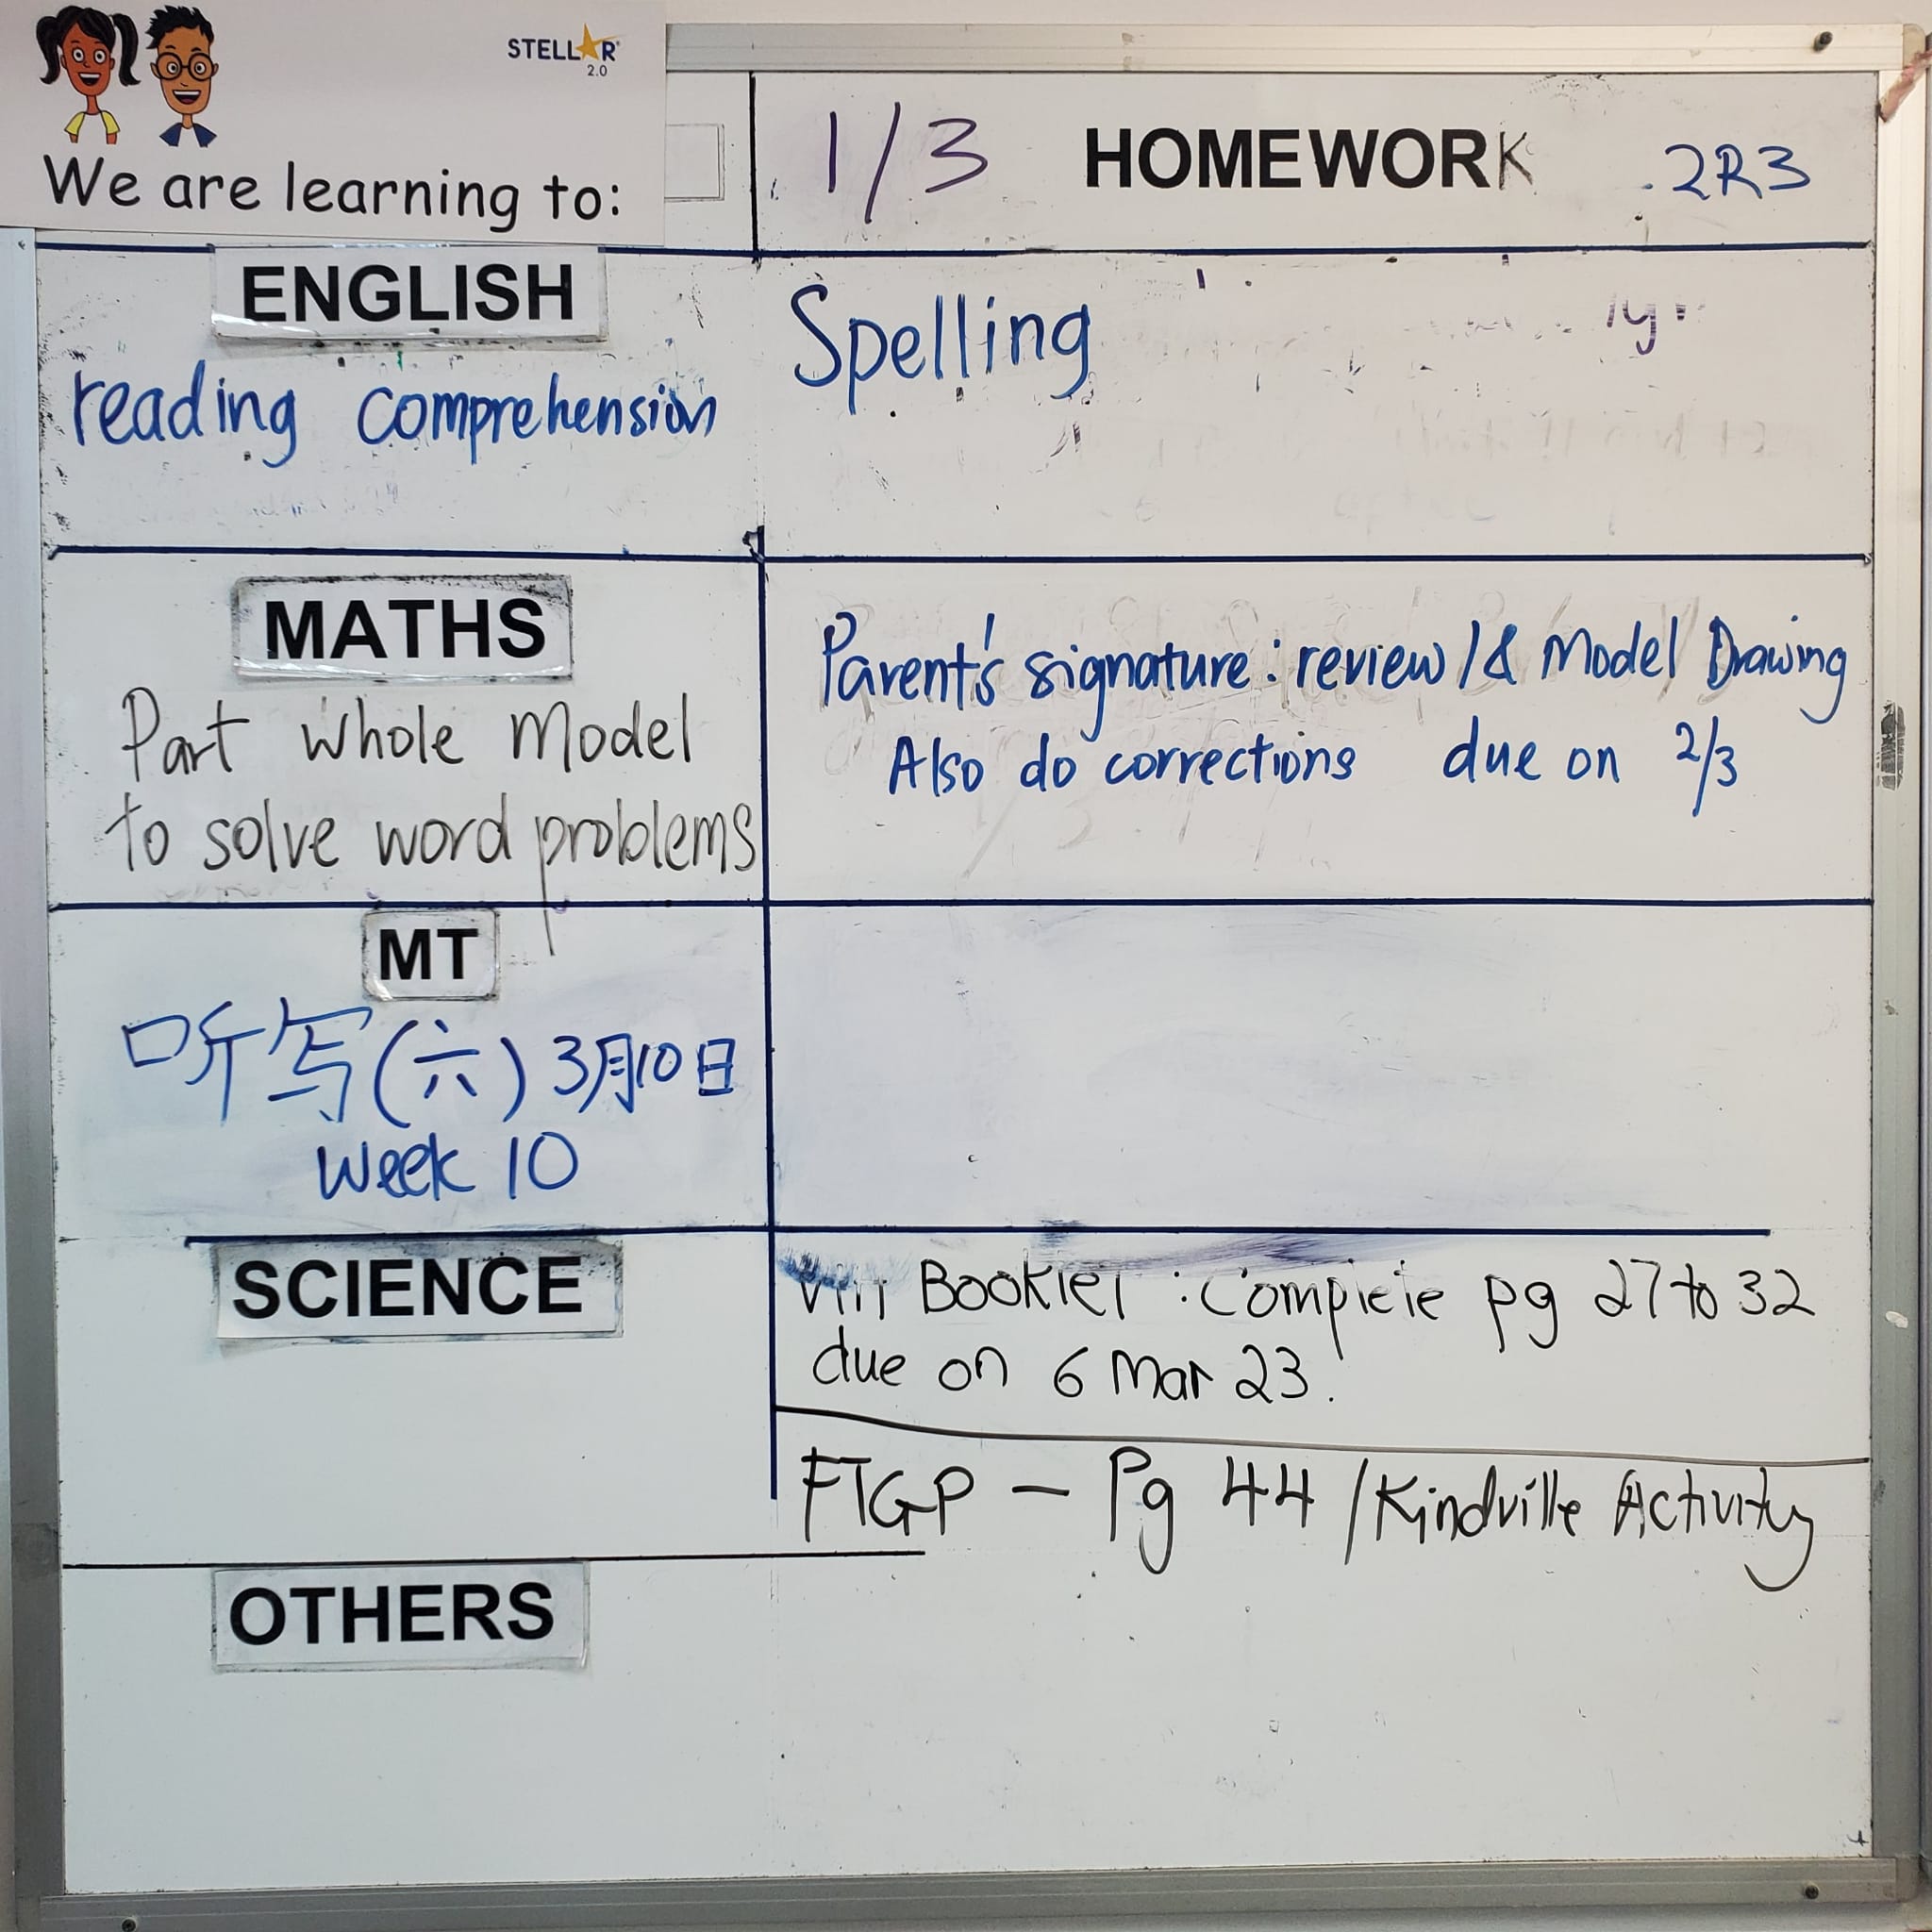 STELLAR
2.0
We are learning to:
1/3 HOMEWORK 2R3
ENGLISH
reading comprehension
Spelling
MATHS
Part whole Model
to solve word problems
Parent's signature: review 1 & Model Drawing
Also do corrections due on 2/3
MT
听写(六) 3月10日
Week 10
SCIENCE
Booklet : Complete pg 27 to 32
due on 6 Mar 23.
FTGP – Pg 44 / Kindville Activity
OTHERS